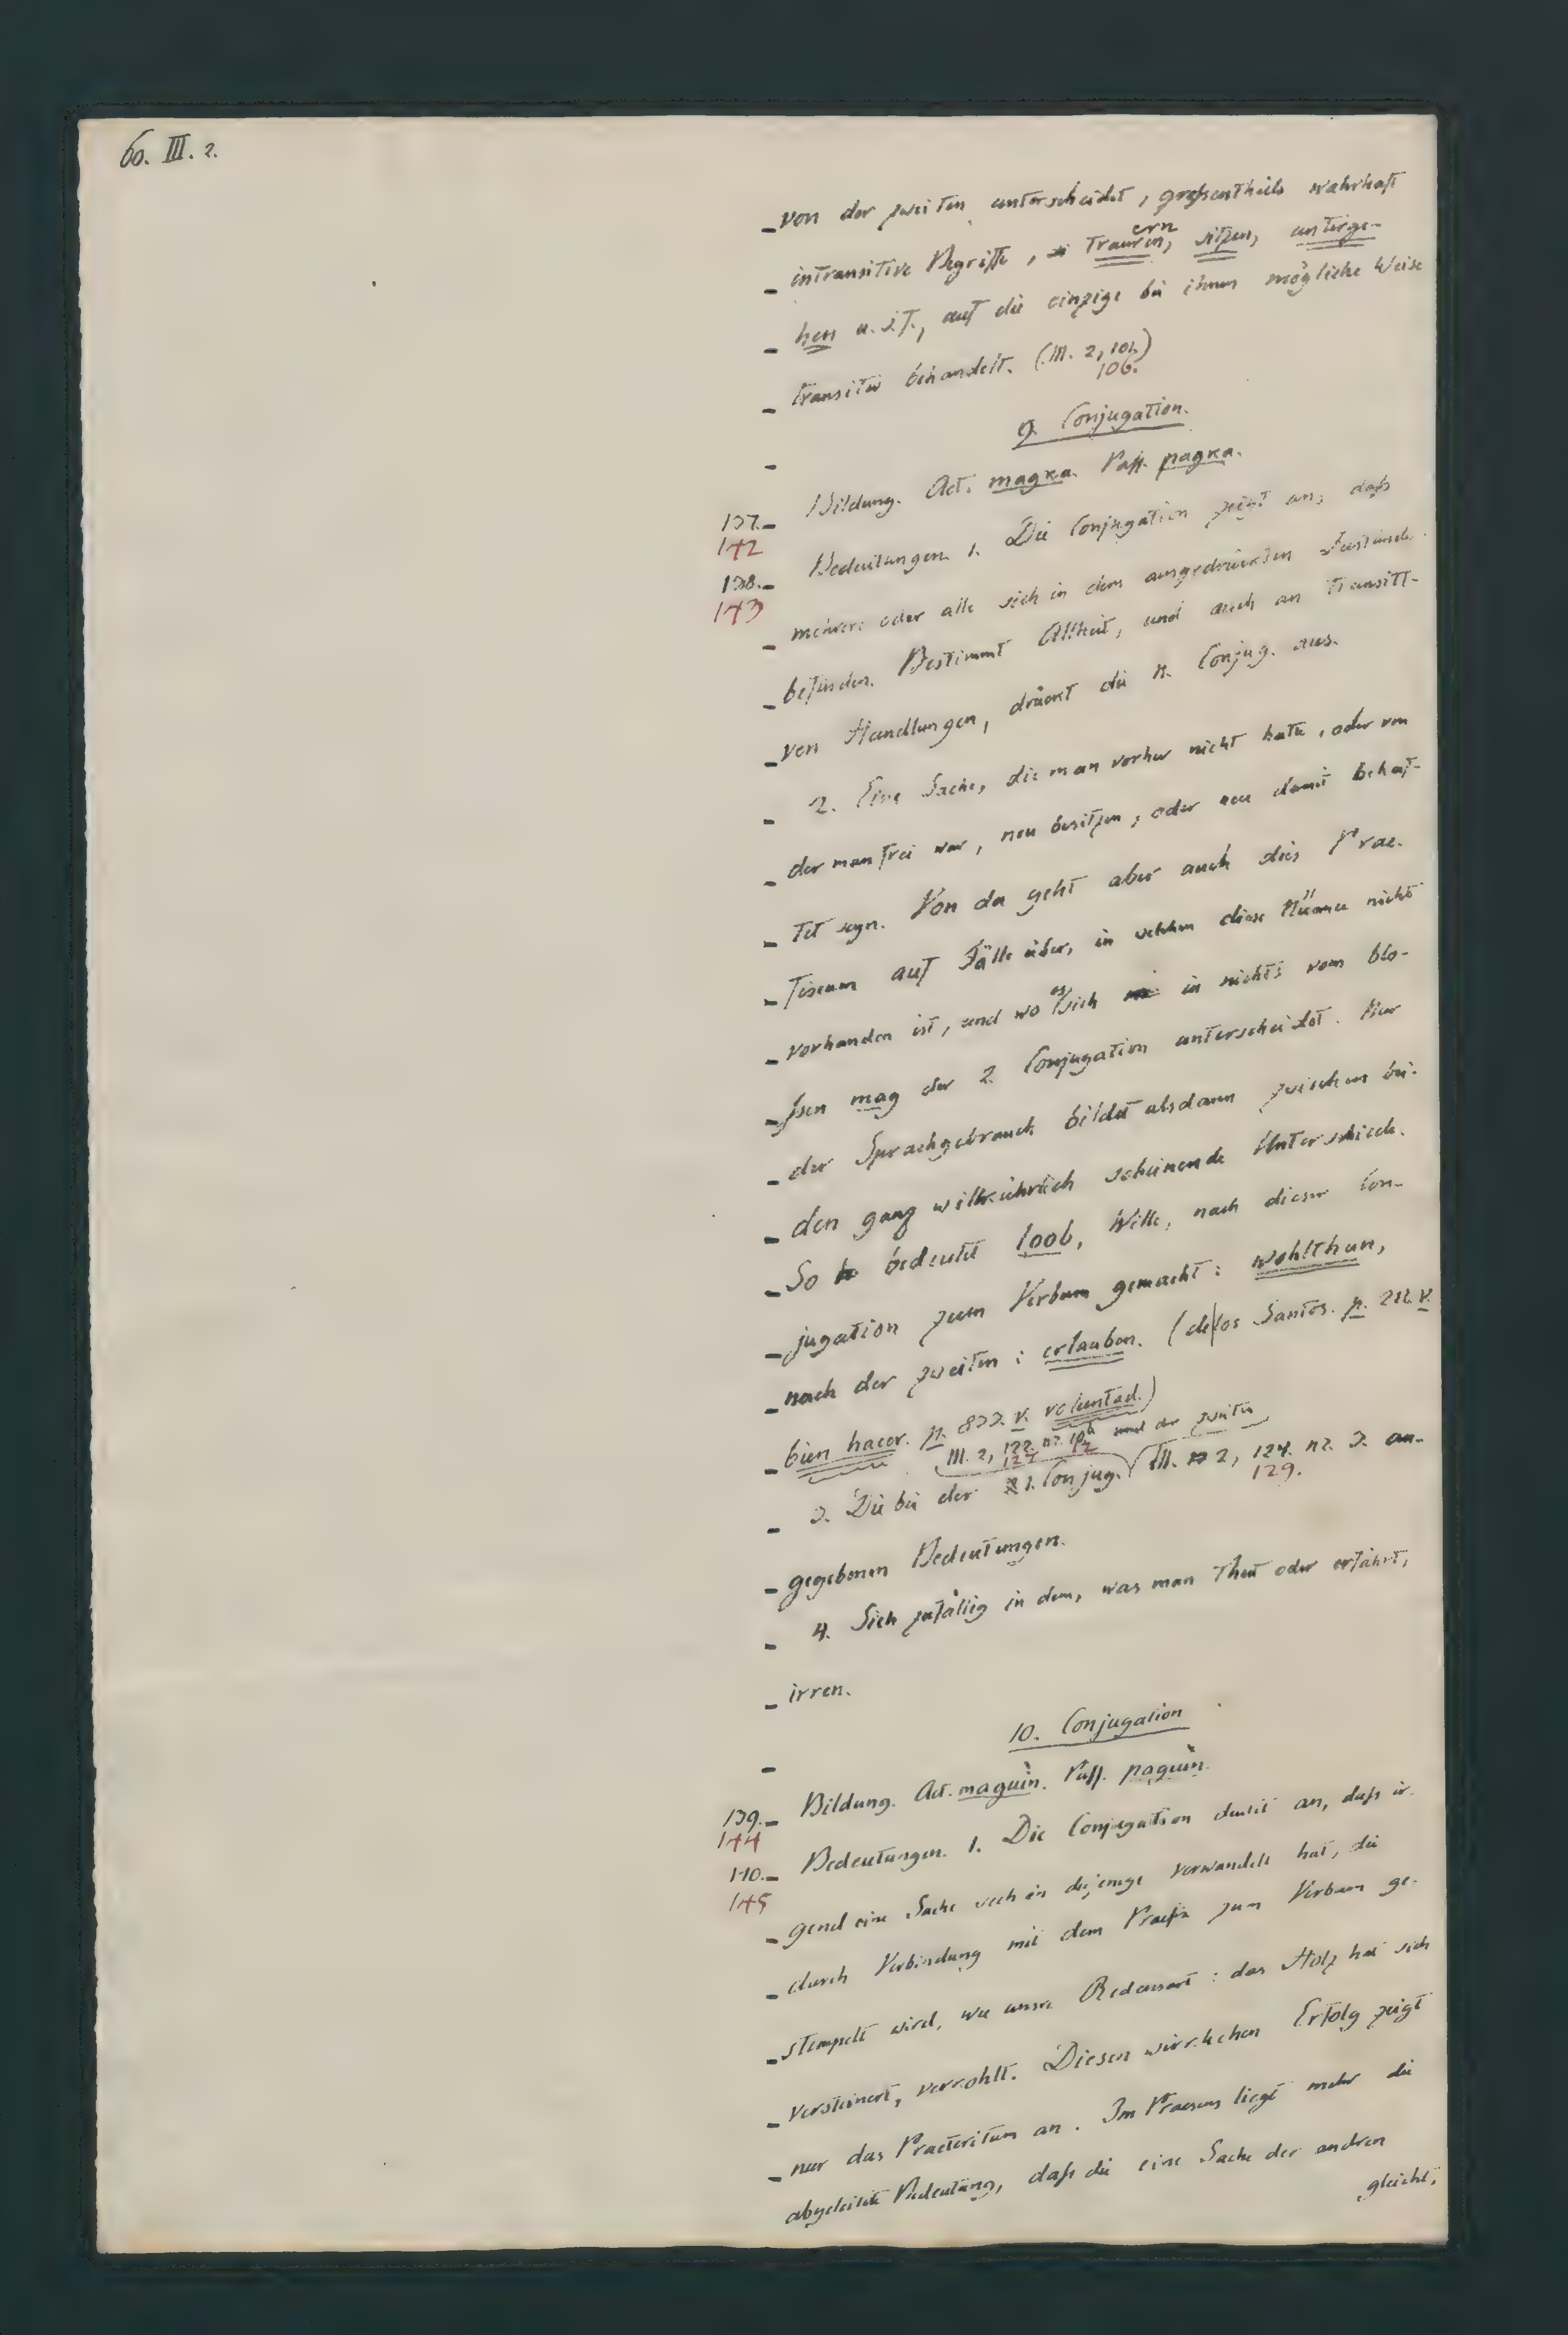 60. III. 2.
von der zweiten unterscheidet, großentheils wahrhaft
ern
intransitive Begriffe, trauren, sitzen, unterge-
hen u. s. f., auf die einzige bei ihnen mögliche Weise
transitiv behandelt. (III. 2, 101.)
106.
9. Conjugation.
137. Bildung. Act. magka. Paß. pagka.
142
138. Bedeutungen. 1. Die Conjugation zeigt an, daß
143
mehrere oder alle sich in dem ausgedrückten Zustande
befinden. Bestimmt Allheit, und auch an Transitt-
ven Handlungen, drückt die 12. Conjug. aus.
2. Eine Sache, die man vorher nicht hatte, oder von
der man frei war, neu besitzen, oder neu damit behaf-
tet seyn. Von da geht aber auch dies Frae-
fixum auf Fälle über, in welchen diese Nüance nicht
vorhanden ist, und wo es sich in nichts vom blo-
ßen mag der 2. Conjugation unterscheidet. Nur
der Sprachgebrauch bildet alsdann zwischen bei-
den ganz willkührlich scheinende Unterschiede.
So bedeutet loob, Wille, nach dieser Con-
jugation zum Verbum gemacht: wohlthun,
nach der zweiten: erlauben. (de los Santos. p. 211. v.
bien hacer. p. 833. v. voluntad.)
III. 2, 122. nr. 10. und der zweiten
127
3. Die bei der 1. Conjug. III. 2, 124. nr. 3. an-
129.
gegebenen Bedeutungen.
4. Sich zufällig in dem, was man thut oder erfährt,
irren.
10. Conjugation
139. Bildung. Act. maguìn. Paß. paguìn.
144
140. Bedeutungen. 1. Die Conjugation deutet an, daß ir-
145
gend eine Sache sich in diejenige verwandelt hat, die
durch Verbindung mit dem Praefix zum Verbum ge-
stempelt wird, wie unsre Redensart: das Holz hat sich
versteinert, verkohlt. Diesen wirklichen Erfolg zeigt
nur das Praeteritum an. Im Praesens liegt mehr die
abgeleitete Bedeutung, daß die eine Sache der andren
gleicht,